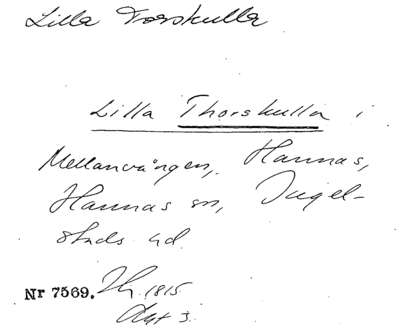 Lilla Torskulla
Lilla Thorskulla i
Mellanvången, Hannas,
Hannas sn, Ingel-
stads hd.
Nr 7569. 1815
Akt 3.